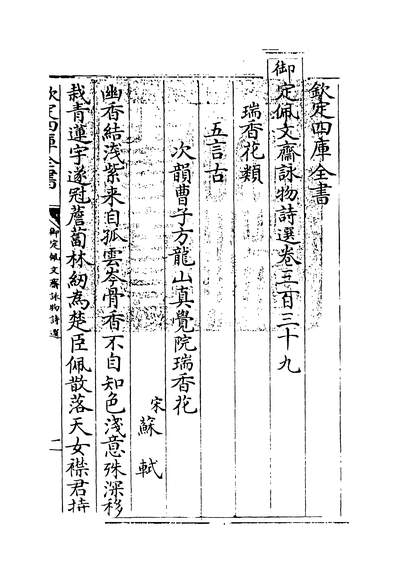 欽定四庫全書
御定佩文齋詠物詩選卷三百三十九
瑞香花類
五言古
次韻曹子方龍山真覺院瑞香花
宋蘇軾
幽香結淺紫来自孤雲岑骨香不自知色淺意殊深移
栽青蓮宇遂冠薝蔔林紉為楚臣佩散落天女襟君持
欽定四庫全書
御定佩文齋詠物詩選
一